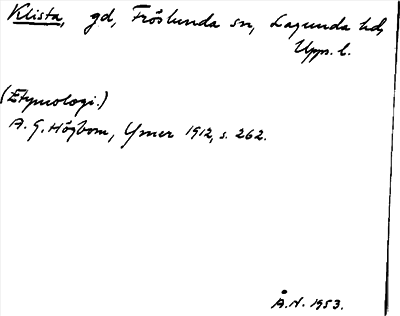 Klista, gd, Fröslunda sn, Lagunda hd,
Upps. l.
(Etymologi.)
A. G. Högbom, Ymer 1912, s. 262.
Å. N. 1953.